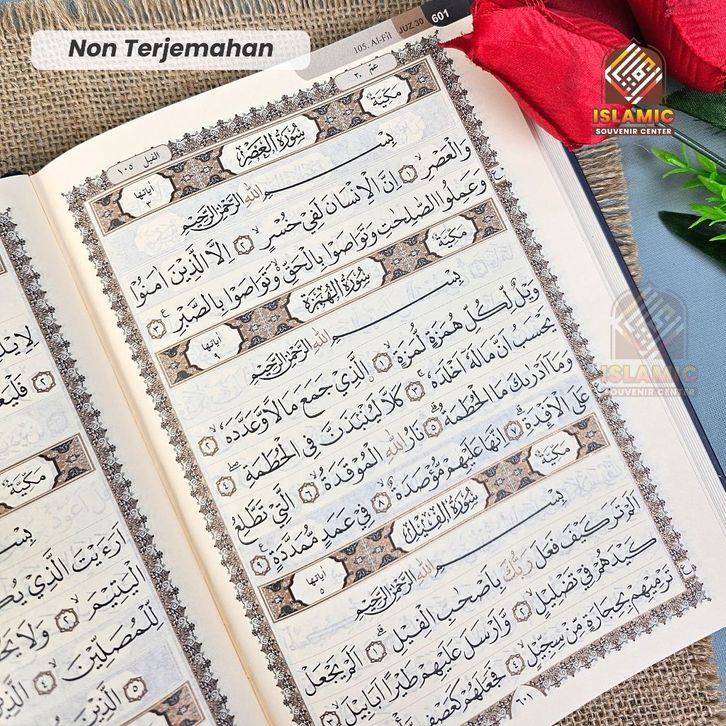 Non Terjemahan
105. Al-Fīl JUZ 30 601
ISLAMIC
SOUVENIR CENTER
عمّ ٣٠
الفيل ١٠٥
مكية ٤ سورة العصر اياتها ٣
بِسْمِ اللهِ الرَّحْمٰنِ الرَّحِيْمِ
وَالْعَصْرِۙ ١ اِنَّ الْاِنْسَانَ لَفِيْ خُسْرٍۙ ٢ اِلَّا الَّذِيْنَ اٰمَنُوْا
وَعَمِلُوا الصّٰلِحٰتِ وَتَوَاصَوْا بِالْحَقِّ ەۙ وَتَوَاصَوْا بِالصَّبْرِ ٣
مكية سورة الهمزة اياتها ٩
بِسْمِ اللهِ الرَّحْمٰنِ الرَّحِيْمِ
وَيْلٌ لِّكُلِّ هُمَزَةٍ لُّمَزَةٍۙ ١ الَّذِيْ جَمَعَ مَالًا وَّعَدَّدَهٗۙ ٢
يَحْسَبُ اَنَّ مَالَهٗٓ اَخْلَدَهٗۚ ٣ كَلَّا لَيُنْۢبَذَنَّ فِى الْحُطَمَةِۖ ٤
وَمَآ اَدْرٰىكَ مَا الْحُطَمَةُ ۗ ٥ نَارُ اللهِ الْمُوْقَدَةُۙ ٦ الَّتِيْ تَطَّلِعُ
عَلَى الْاَفْـِٕدَةِۗ ٧ اِنَّهَا عَلَيْهِمْ مُّؤْصَدَةٌۙ ٨ فِيْ عَمَدٍ مُّمَدَّدَةٍ ٩
مكية سورة الفيل اياتها ٥
بِسْمِ اللهِ الرَّحْمٰنِ الرَّحِيْمِ
اَلَمْ تَرَ كَيْفَ فَعَلَ رَبُّكَ بِاَصْحٰبِ الْفِيْلِۗ ١ اَلَمْ يَجْعَلْ
كَيْدَهُمْ فِيْ تَضْلِيْلٍۙ ٢ وَّاَرْسَلَ عَلَيْهِمْ طَيْرًا اَبَابِيْلَۙ ٣
تَرْمِيْهِمْ بِحِجَارَةٍ مِّنْ سِجِّيْلٍۙ ٤ فَجَعَلَهُمْ كَعَصْفٍ
٦٠١
مكية
اَرَءَيْتَ الَّذِيْ
الْيَتِيْمَۙ ٢ وَلَا
لِّلْمُصَلِّيْنَۙ ٤ الَّذِيْنَ
ISLAMIC
SOUVENIR CENTER